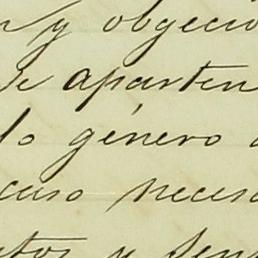 y obgecio
de aparten
lo género
cuso neces
tos y sen